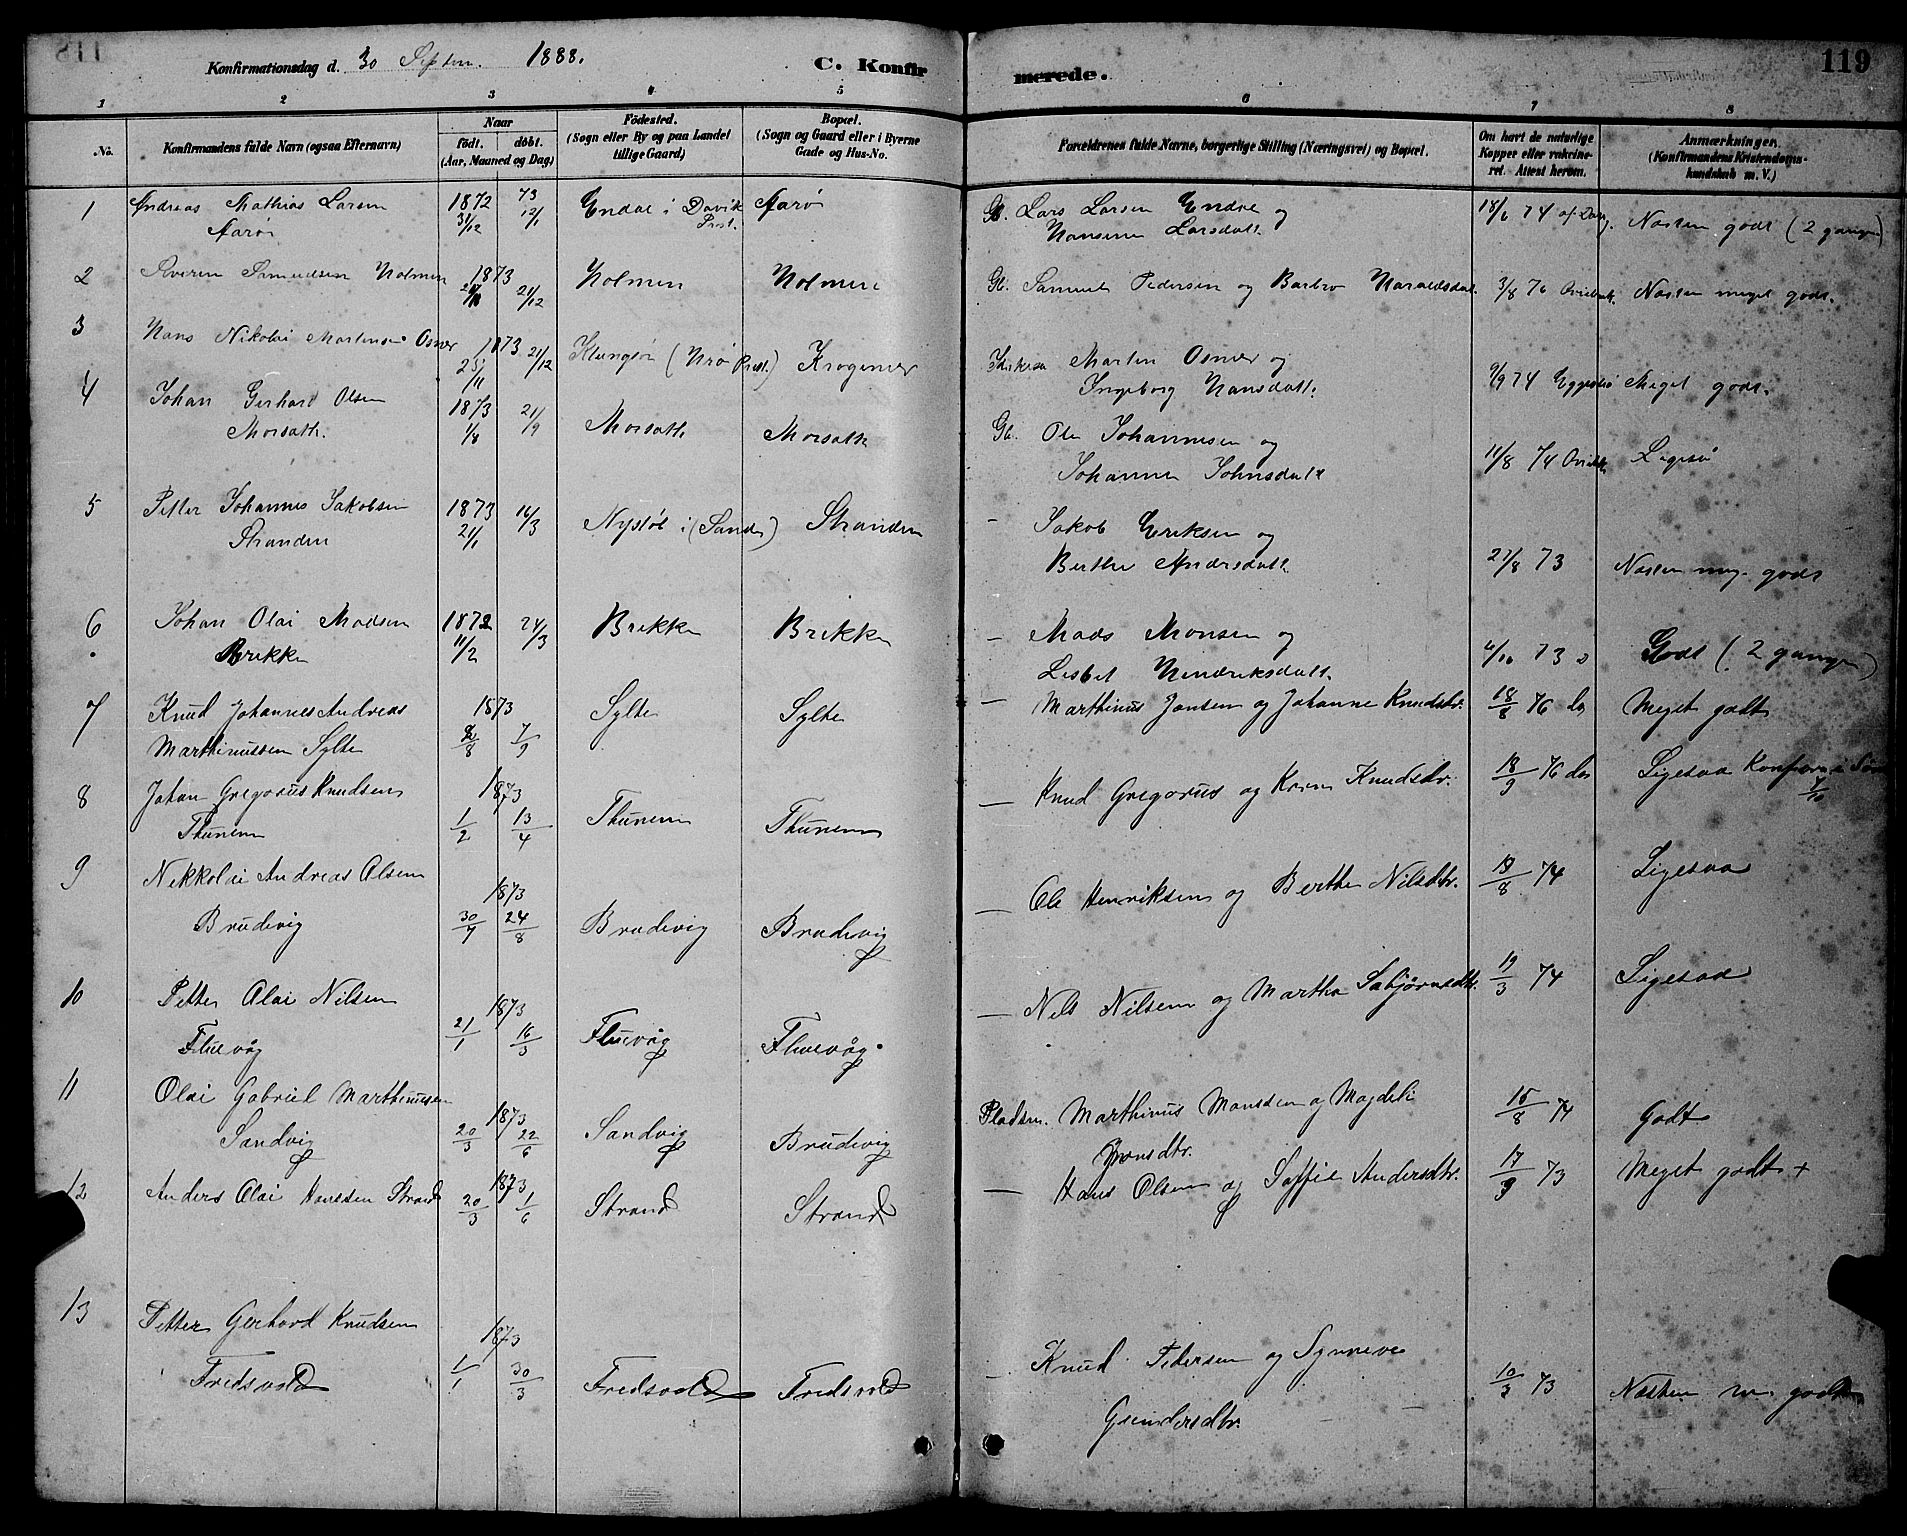 Konfirmationsdag d. 30 Septem. 1888. C. Konfirmerede. 119
1 2 3 4 5 6 7 8
No.
Konfirmandens fulde Navn (ogsaa Efternavn)
Naar
födt. döbt.
(Aar, Maaned og Dag)
Födested.
(Sogn eller By og paa Landet tillige Gaard)
Bopæl.
(Sogn og Gaard eller i Byerne Gade og Hus-No.
Forældrenes fulde Navne, borgerlige Stilling (Næringsvei) og Bopæl.
Om havt de naturlige Kopper eller vakcineret. Attest herom.
Anmærkninger. (Konfirmandens Kristendomskundskab m. V.)
1 Andreas Mathias Larsen 1872 73 Endal i Davik Aarö Gb. Lars Larsen Endre og 18/6 74 af Næsten godt (2 gange)
Aarö 31/12 12/1 Prst. Hansine Larsdatt.
2 Severin Samuelsen Holmen 1873 21/12 Holmen Holmen Gb. Samuel Pedersen og Barbro Haraldsdat. 3/8 76 Næsten meget godt.
3 Hans Nikolai Martinsen Osnes 1873 21/12 Klungsör (Hrö Prst.) Krogenes Martin Osnes og 9/9 74 Meget godt.
25/11 Ingeborg Hansdatt.
4 Johan Gerhard Olsen 1873 21/9 Morsath Morsath Gb. Ole Johannesen og 11/8 74 Ligeså
Morsath. 1/8 Johanne Johnsdatt
5 Petter Johannes Jakobsen 1873 16/3 Nystöl i (Sande) Stranden - Jakob Eriksen og
Stranden 21/1 Berthe Andersdatt. 21/8 73 Næsten meg. godt
6 Johan Olai Madsen 1872 24/3 Brekke Brekke - Mads Monsen og 4/10 73 Godt (2 gange)
Brekke 11/2 Lisbet Hendriksdatt.
7 Knud Johannes Andreas 1873 Sylte Sylte - Marthinus Jonsen og Johanne Knudsdtr. 18/8 76 Meget godt
Marthinussen Sylte 2/8 7/9
8 Johan Gregorius Knudsen 1873 Thunem Thunem - Knud Gregorius og Karen Knudsdtr. 18/9 76 Ligesaa
Thunem 1/2 13/4
9 Nikkolai Andreas Olsen 1873 Brudevig Brudevig - Ole Henriksen og Berthe Nilsdtr. 19/8 74 Ligesaa
Brudevig 30/7 24/8
10 Petter Olai Nilsen 1873 Fluevåg Fluevåg - Nils Nilsen og Martha Sabjörnsdtr. 19/3 74 Ligesaa
Fluevåg 21/1 16/3
11 Olai Gabriel Marthinussen 1873 Sandvig Brudevig Pladsm. Marthinus Monssen og Magdeli 15/8 74 Godt
Sandvig 20/3 22/6 Jonsdtr.
12 Anders Olai Hanssen Strand 1873 20/3 1/6 Strand Strand - Hans Olsen og Soffie Andersdtr. 17/9 73 Meget godt +
13 Petter Gerhard Knudsen 1873 - Knud Pedersen og Synneve
Fredsvold 1/1 30/3 Fredsvold Fredsvold Gundersdtr. 10/3 73 Næsten m. godt